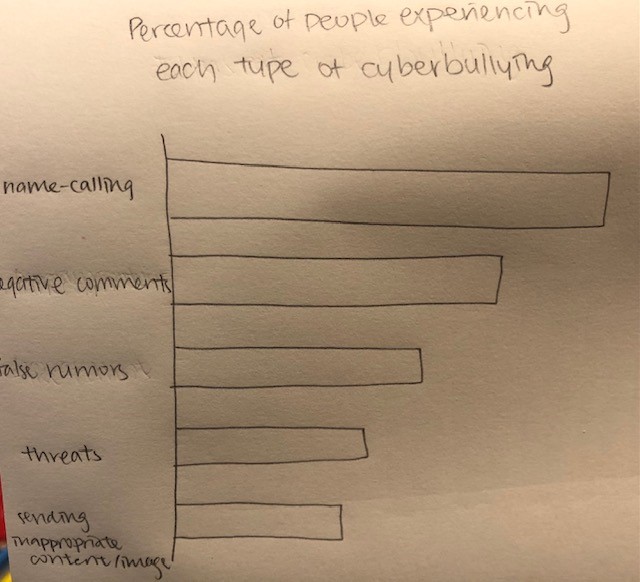 Percentage of people experiencing
each type of cyberbullying
name-calling
egative comments
false rumors
threats
sending
inappropriate
content/image